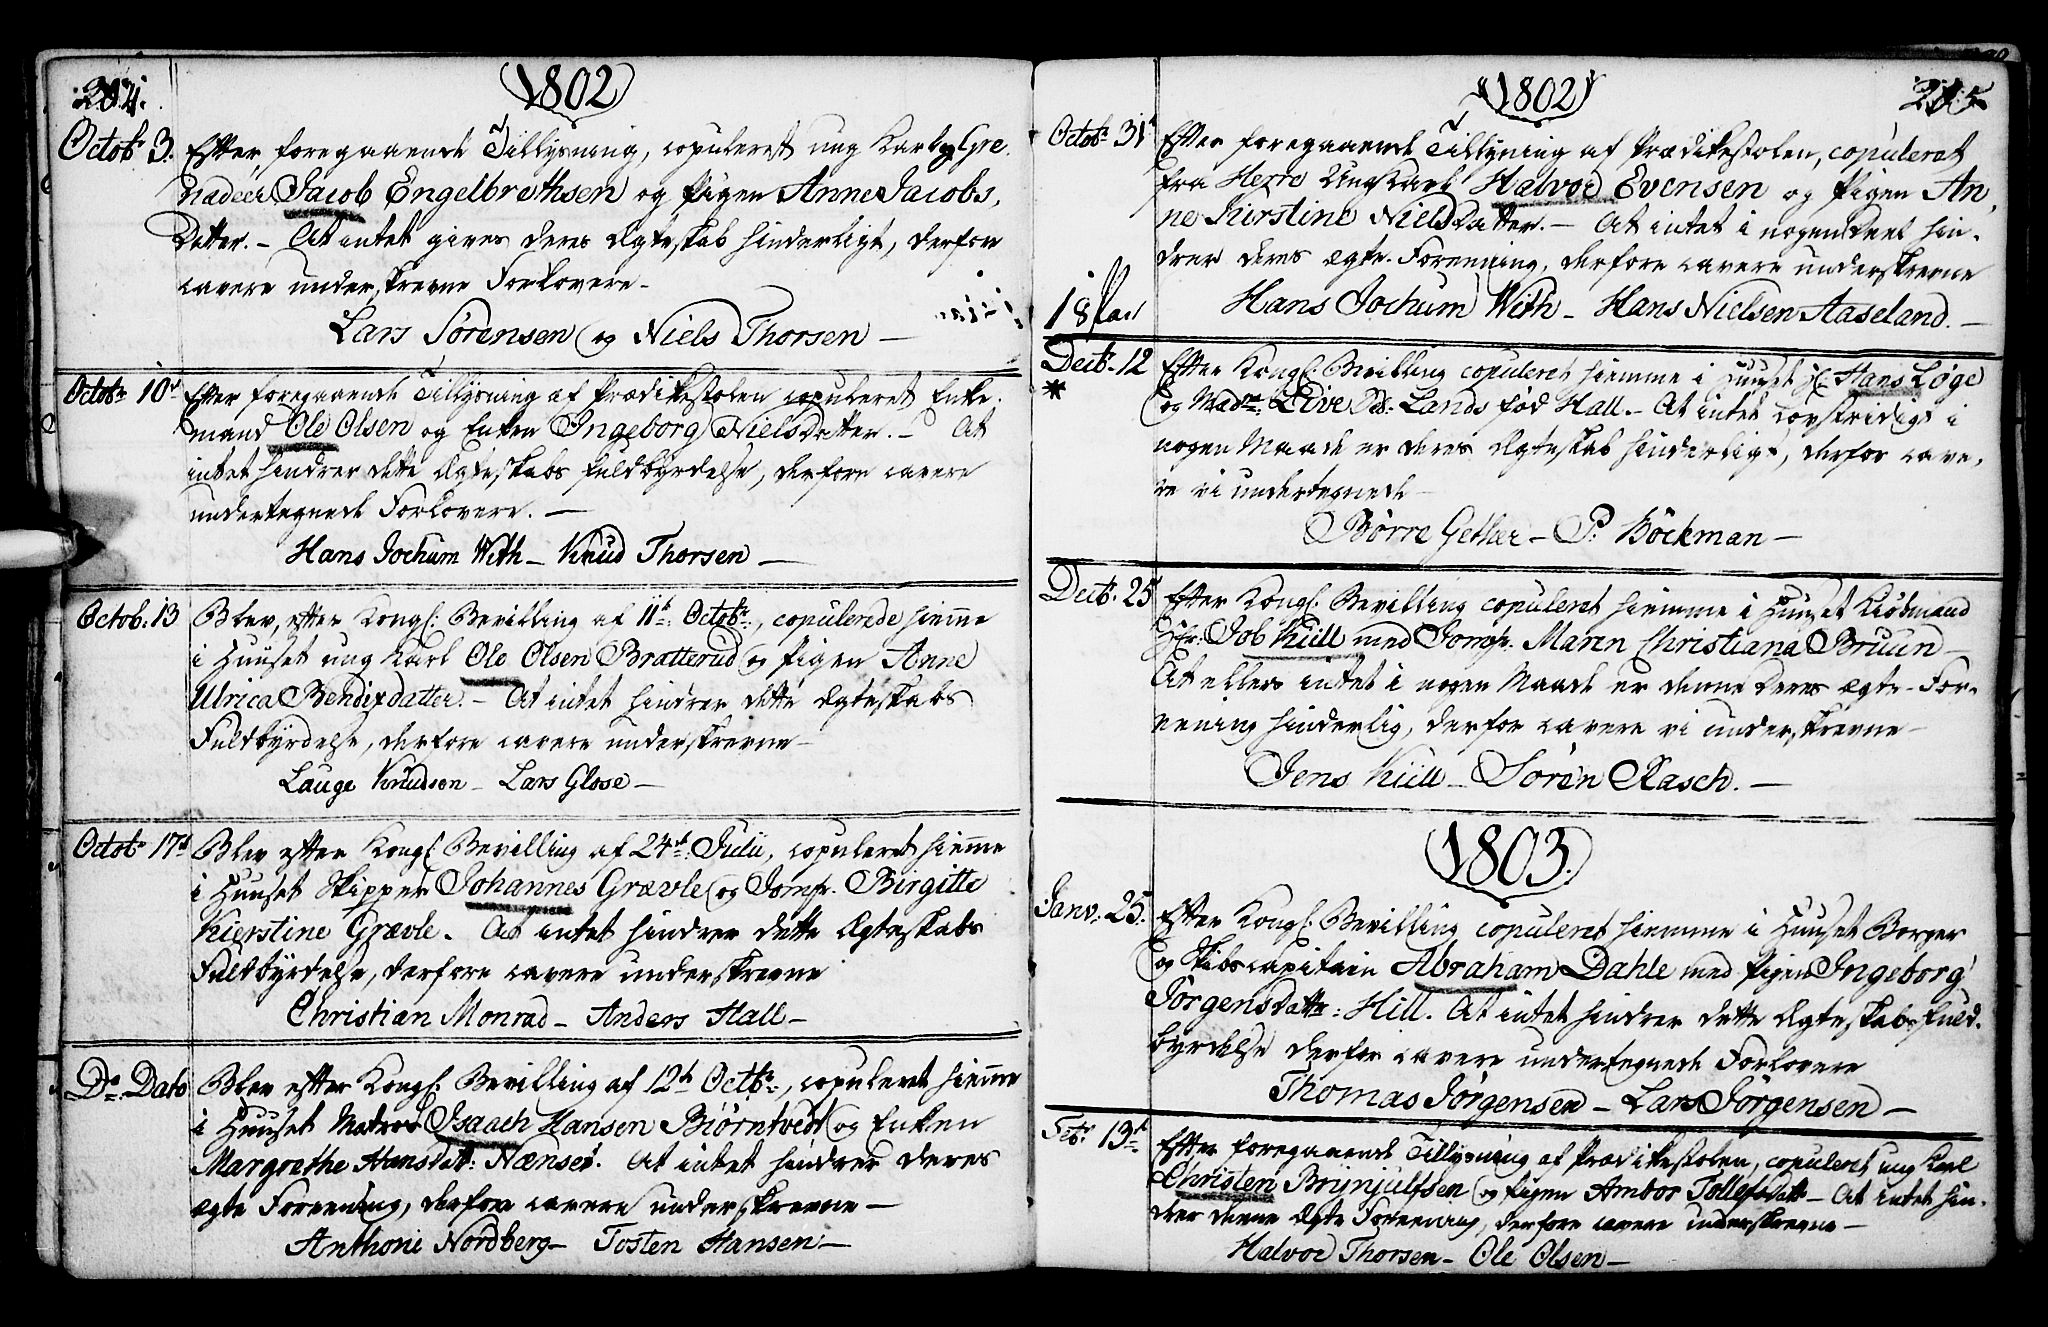 204.
1802
Octobr 3.
Efter foregaaende Tillysning, copuleret ung Karl og Gre-
nadeer Jacob Engelbrethsen og Pigen Anne Jacobs,
Datter. – At intet gives deres Ægteskab hinderligt, derfor
cavere underskrevne Forlovere –
Lars Sørensen og Niels Thorsen –
Octobr 10de
Efter foregaaende Tillysning af Prædikestolen copuleret Enke-
mand Ole Olsen og Enken Ingeborg Nielsdatter. – At
intet hindrer dette Ægteskabs fuldbyrdelse, derfore cavere
undertegnede Forlovere. –
Hans Jochum With – Knud Thorsen –
Octob: 13
Blev, efter Kongl: Bevilling af 11te Octobr:, copulerede hieme
i Huuset ung Karl Ole Olsen Bratterud og Pigen Anne
Ulrica Bendixdatter. – At intet hindrer dette Ægteskabs
Fuldbyrdelse, derfore cavere underskrevne –
Lauge Knudsen – Lars Glose –
Octobr 17de
Blev efter Kongl: Bevilling af 24de Julii, copuleret hieme
i Huuset Skipper Johannes Grævle og Jomfr. Birgitte
Kierstine Grævle. At intet hindrer dette Ægteskabs
Fuldbyrdelse, derfore cavere underskrevne
Christian Monrad – Anders Hall –
Do Dato
Blev efter Kongl: Bevilling af 12te Octbr:, copuleret hieme
i Huuset Matros Isaach Hansen Biørntvedt og Enken
Margrethe Hansdatt: Nænset. At intet hindrer deres
ægte Foreening, derfore cavere underskrevne –
Anthoni Nordberg – Tosten Hansen –
1802
205
Octobr 31te
Efter foregaaende Tillysning af Prædikestolen, copuleret
fra Herre Ungkarl Halvor Evensen og Pigen An-
ne Kirstine Nielsdatter. – At intet i nogen Deel hin-
drer deres ægte-Foreening, derfore cavere underskrevne
Hans Jochum With – Hans Nielsen Aaseland. –
18
Decbr. 12
Efter Kongl: Bevilling copuleret hiemme i Huuset Hr: Hans Løge
og Madme: Live Sl: Lands fød Hall. – At intet Lovstridigt i
nogen Maade er deres Ægteskab hinderligt, derfor cave-
re vi undertegnede –
Børre Gether – P: Böckman –
Decbr. 25
Efter Kongl: Bevilling copuleret hiemme i Huuset Kiøbmand
Hr: Job Küll med Jomfr. Maren Christiana Bruun –
At ellers intet i nogen Maade er denne deres ægte-For-
eening hinderlig, derfor cavere vi underskrevne –
Jens Küll – Sørèn Rasch. –
1803.
Janv: 25.
Efter Kongl: Bevilling copuleret hiemme i Huuset Borger
og Skibscapitain Abraham Dahle med Pigen Ingeborg
Jørgensdattr: Hill. At intet hindrer dette Ægteskabs fuld-
byrdelse derfor cavere undertegnede Forlovere
Thomas Jørgensen – Lars Jørgensen –
Febr. 13de
Efter foregaaende Tillysning af Prædikestolen, copuleret ung Karl
Christen Brynjulfsen og Pigen Ambor Tollefsdattr – At intet hin-
drer denne Ægte Foreening, derfore cavere underskrevne –
Halvor Thorsen – Ole Olsen –